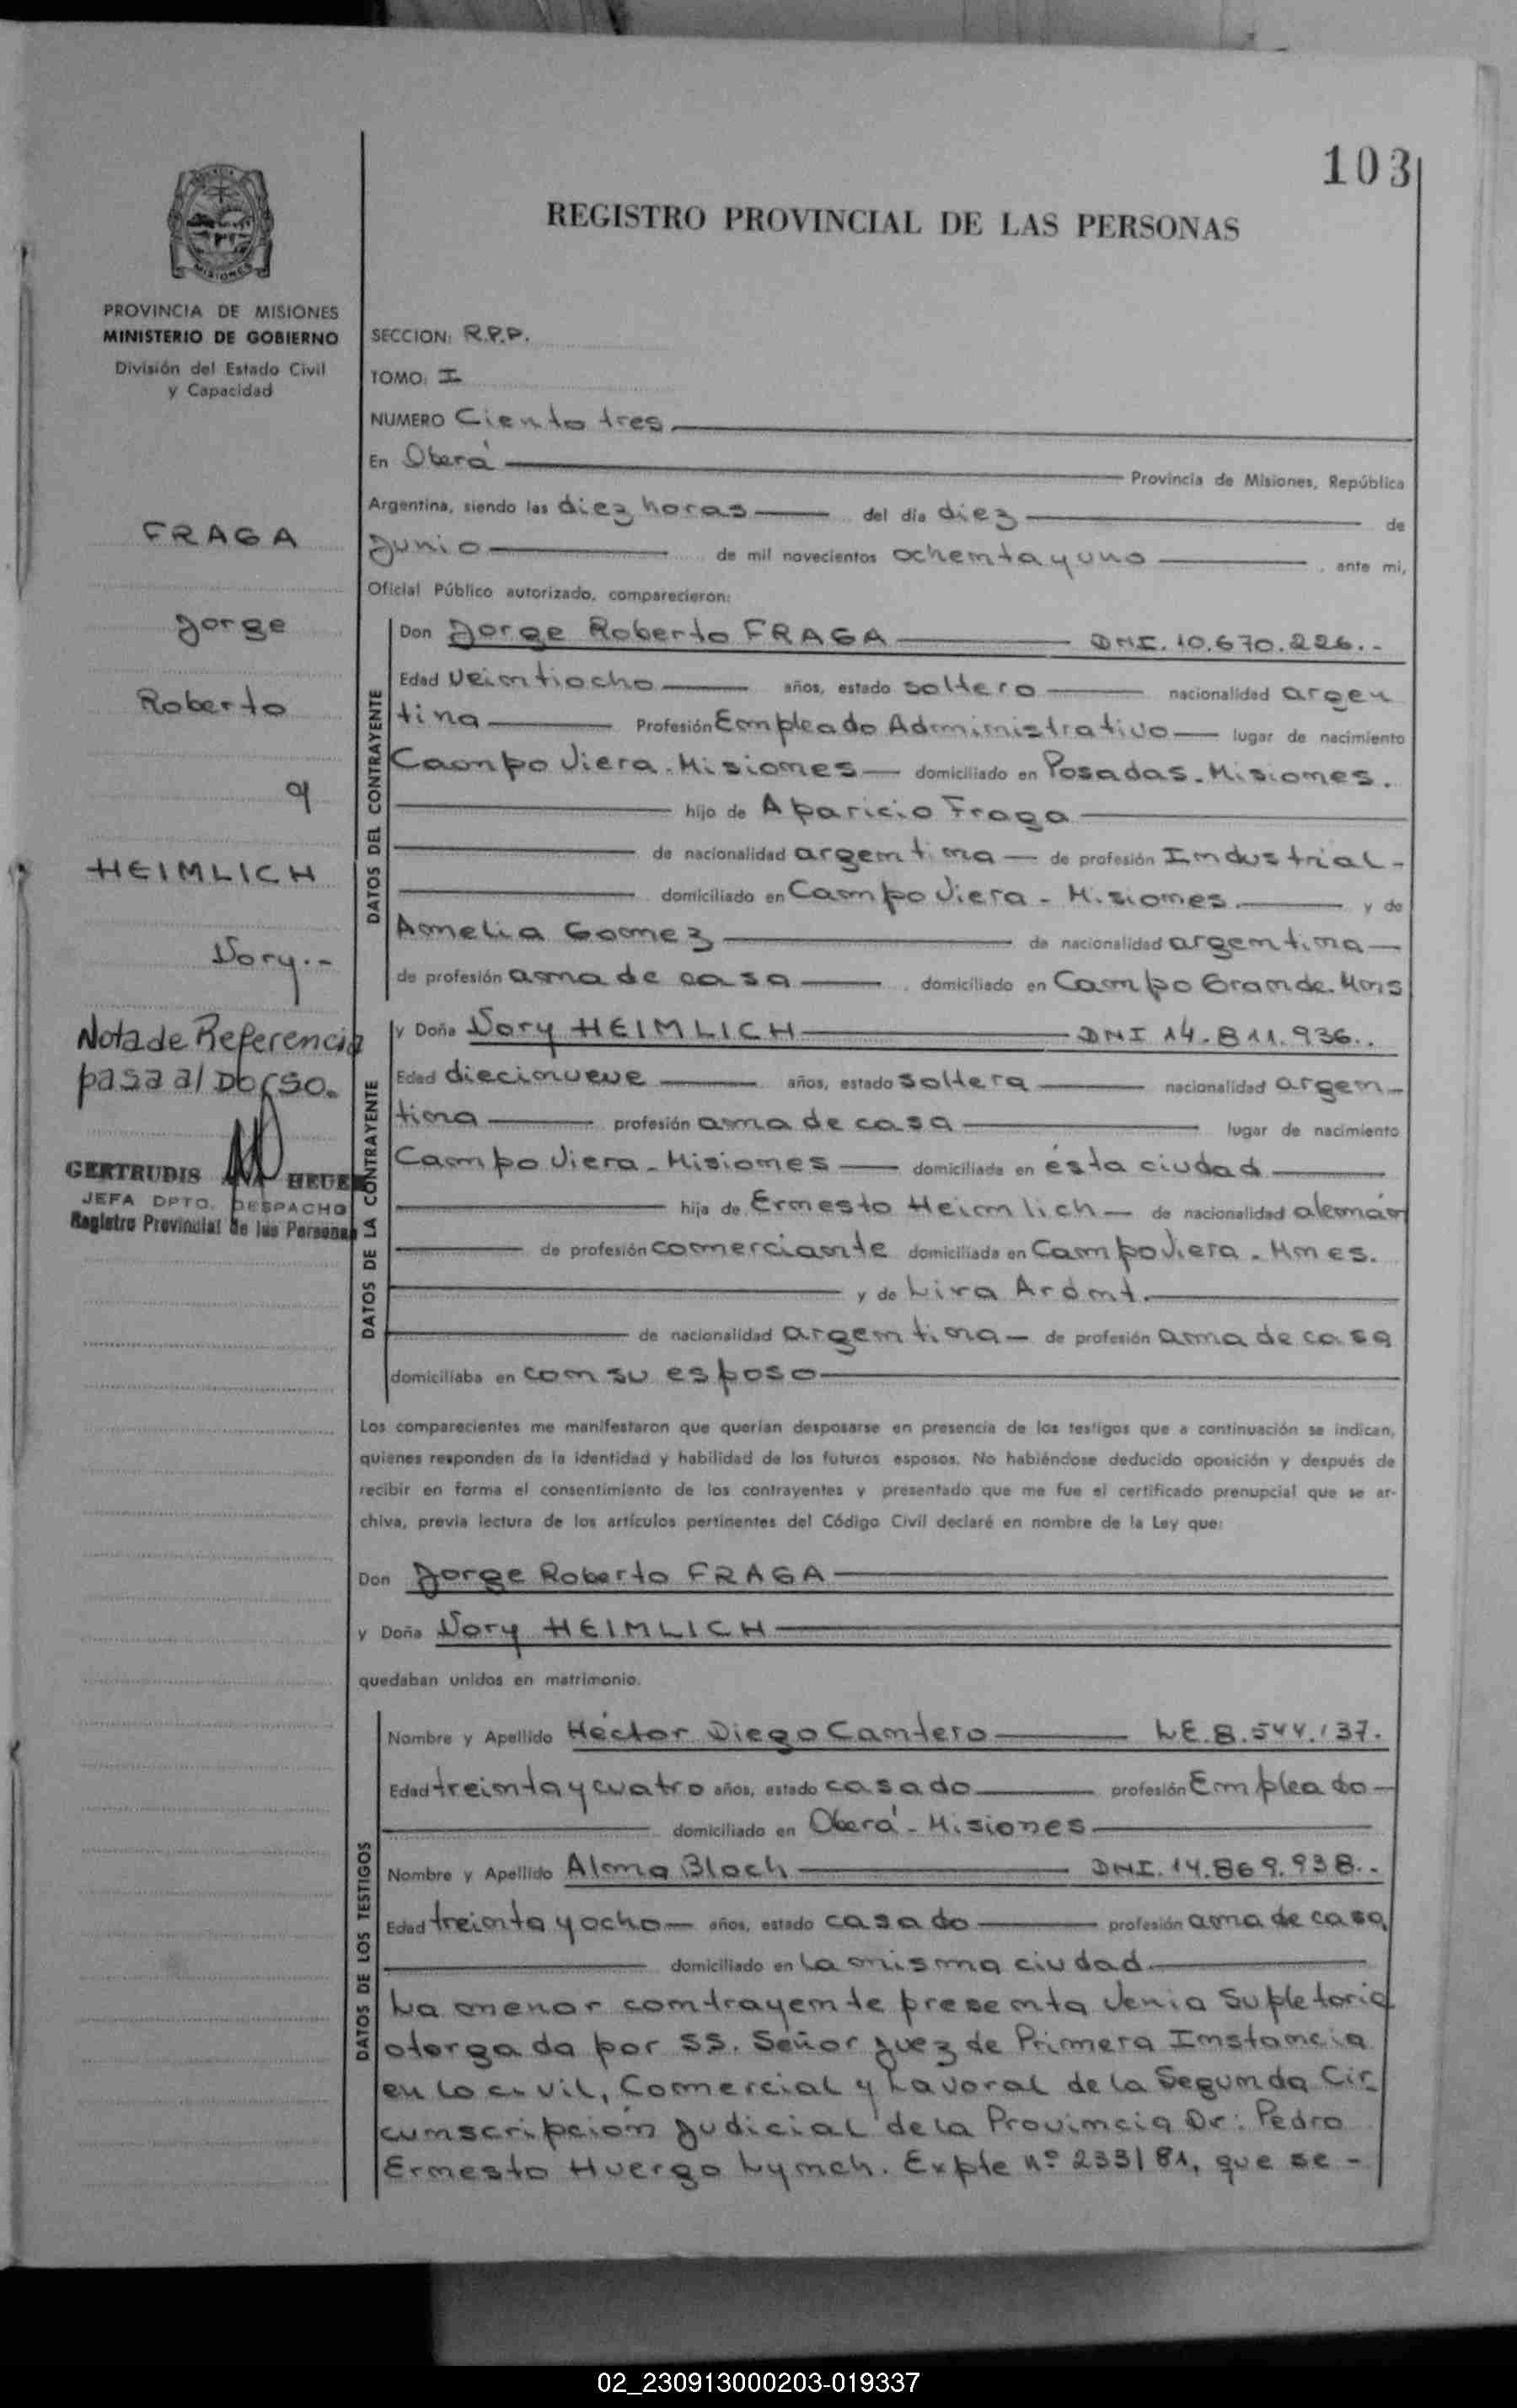 103
REGISTRO PROVINCIAL DE LAS PERSONAS
MISIONES
PROVINCIA DE MISIONES
MINISTERIO DE GOBIERNO
División del Estado Civil
y Capacidad
SECCION: R.P.P.
TOMO: I
NUMERO Ciento tres
En Oberá Provincia de Misiones, República
Argentina, siendo las diez horas del día diez de
Junio de mil novecientos ochenta y uno, ante mi,
Oficial Público autorizado, comparecieron:
FRAGA
Jorge
Roberto
y
HEIMLICH
Nory.-
Nota de Referencia
pasa al Dorso.
GERTRUDIS HEUER
JEFA DPTO. DESPACHO
Registro Provincial de las Personas
DATOS DEL CONTRAYENTE
Don Jorge Roberto FRAGA DNI. 10.670.226.-
Edad veintiocho años, estado soltero nacionalidad argen
tina Profesión Empleado Administrativo lugar de nacimiento
Campo Viera-Misiones domiciliado en Posadas-Misiones.
hijo de Aparicio Fraga
de nacionalidad argentina de profesión Industrial-
domiciliado en Campo Viera-Misiones. y de
Amelia Gomez de nacionalidad argentina
de profesión ama de casa domiciliado en Campo Grande. Mnis
DATOS DE LA CONTRAYENTE
y Doña Nory HEIMLICH DNI 14.811.936..
Edad diecinueve años, estado soltera nacionalidad argen-
tina profesión ama de casa lugar de nacimiento
Campo Viera-Misiones domiciliada en ésta ciudad
hija de Ernesto Heimlich de nacionalidad alemán
de profesión comerciante domiciliada en Campo Viera-Mnes.
y de Lira Arndt.
de nacionalidad argentina de profesión ama de casa
domiciliaba en con su esposo
Los comparecientes me manifestaron que querían desposarse en presencia de los testigos que a continuación se indican,
quienes responden de la identidad y habilidad de los futuros esposos. No habiéndose deducido oposición y después de
recibir en forma el consentimiento de los contrayentes y presentado que me fue el certificado prenupcial que se ar-
chiva, previa lectura de los artículos pertinentes del Código Civil declaré en nombre de la Ley que:
Don Jorge Roberto FRAGA
y Doña Nory HEIMLICH
quedaban unidos en matrimonio.
DATOS DE LOS TESTIGOS
Nombre y Apellido Héctor Diego Cantero LE.8.544.137.
Edad treinta y cuatro años, estado casado profesión Empleado
domiciliado en Oberá-Misiones
Nombre y Apellido Alma Bloch DNI.14.869.938..
Edad treinta y ocho años, estado casado profesión ama de casa
domiciliado en la misma ciudad
La menor contrayente presenta Venia Supletoria
otorgada por S.S. Señor Juez de Primera Instancia
en lo civil, Comercial y Lavoral de la Segunda Cir_
cunscripción Judicial de la Provincia Dr: Pedro
Ernesto Huergo Lynch. Expte Nº 233/81, que se-
02_230913000203-019337